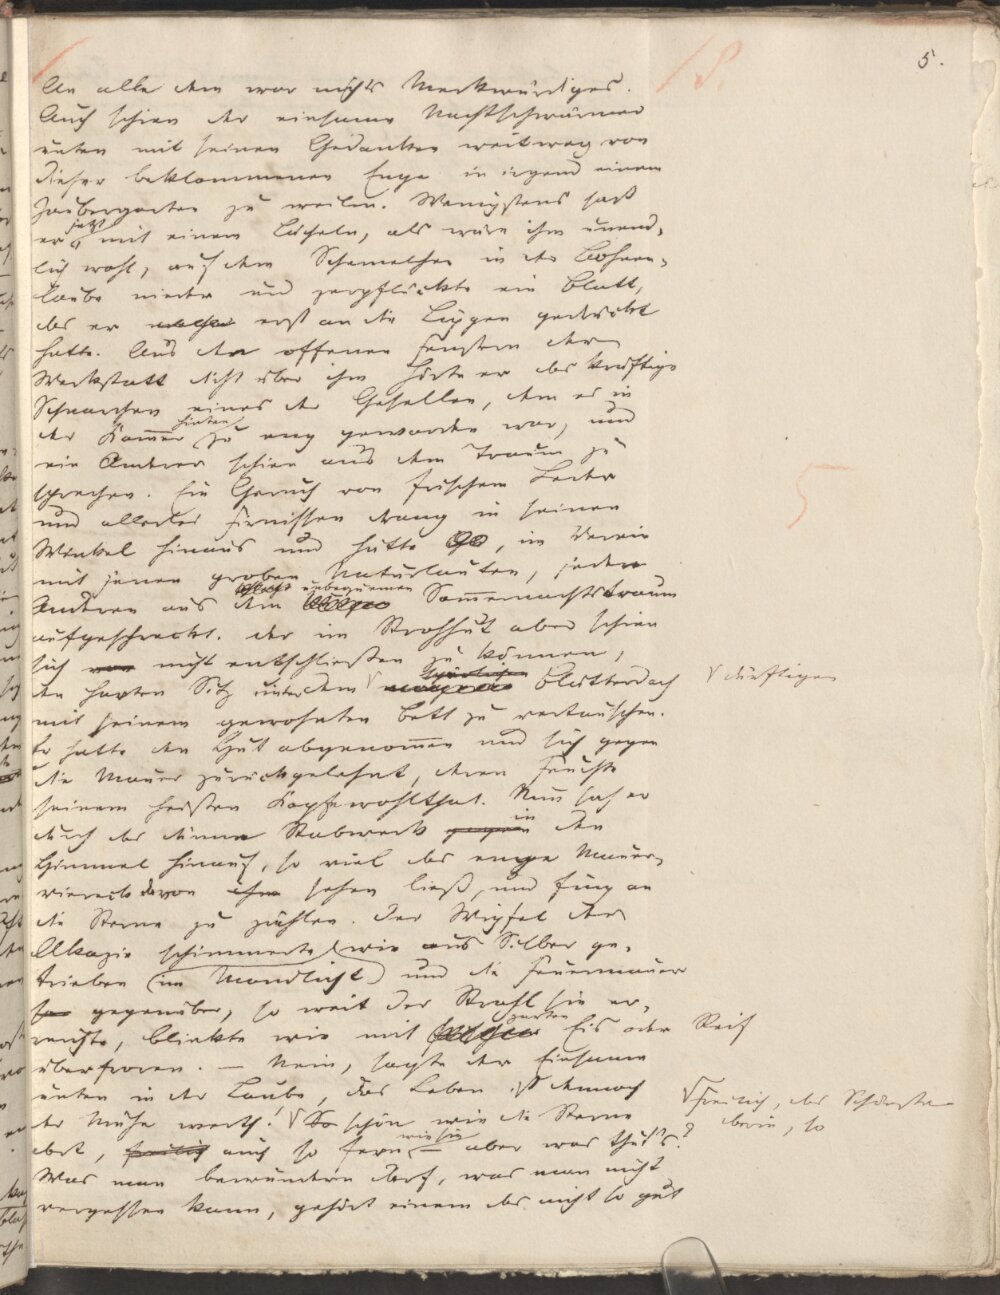 5.
18.
An alle dem war nichts Merkwürdiges.
Auch schien der einsame Nachtschwärmer
unten mit seinen Gedanken weitweg von
dieser beklommenen Enge in irgend einem
Zaubergarten zu weilen. Wenigstens saß
er jetzt mit einem Lächeln, als wäre ihm unend-
lich wohl, auf dem Schemelchen in der Bohnen-
laube nieder und zerpflückte ein Blatt,
das er erst an die Lippen gedrückt
hatte. Aus den offenen Fenstern der
Werkstatt dicht über ihm hörte er das kräftige
Schnarchen eines der Gesellen, dem es in
der Kammer hinten zu eng geworden war, und
ein Anderer schien aus dem Traum zu
sprechen. Ein Geruch von frischem Leder
und allerlei Firnissen drang in seinen
Winkel hinaus und hätte, im Verein
mit jenen groben Naturlauten, jeden
Anderen aus dem unbequemen Sommernachtstraum
aufgeschreckt. Der im Strohhut aber schien
sich nicht entschließen zu können,
den harten Sitz unter dem Blätterdach
dürftigen
mit seinem gewohnten Bett zu vertauschen.
Er hatte den Hut abgenommen und sich gegen
die Mauer zurückgelehnt, deren Feuchte
seinem heißen Kopfe wohlthat. Nun sah er
durch das dünne Stabwerk in den
Himmel hinauf, so viel das enge Mauer-
viereck davon sehen ließ, und fing an
die Sterne zu zählen. Der Wipfel der
Akazie schimmerte wie aus Silber ge-
trieben (im Mondlicht) und die Feuermauer
gegenüber, so weit der Strahl sie er-
reichte, blinkte wie mit zarten Eis oder Reif
überfroren. – Nein, sagte der Einsame
unten in der Laube, das Leben ist dennoch
der Mühe werth! So schön wie die Sterne
Freilich, das Schönste
darin, so
dort, auch so fern wie sie – aber was thut's?
Was man bewundern darf, was man nicht
vergessen kann, gehört einem das nicht so gut
5